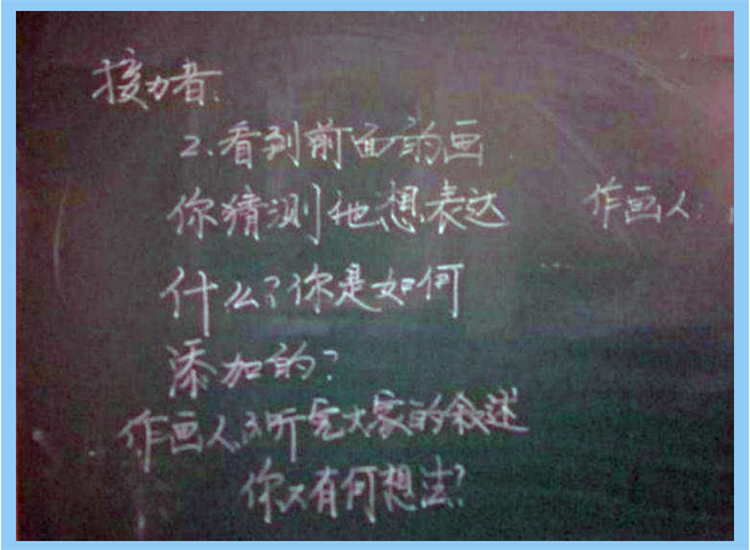 接力者:
2.看到前面的画
你猜测他想表达
作画人
什么?你是如何
添加的?
作画人3听完大家的叙述
你又有何想法?